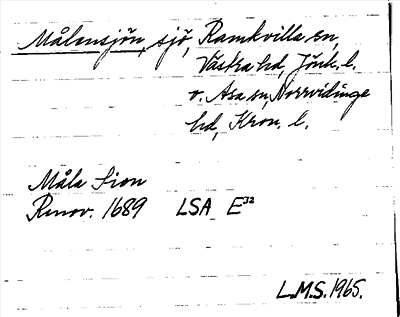 Målensjön, sjö, Ramkvilla sn,
Västra hd, Jönk. l.
o. Asa sn, Norrvidinge
hd, Kron. l.
Måla Sion
Renov. 1689 LSA E32
L.M.S. 1965.